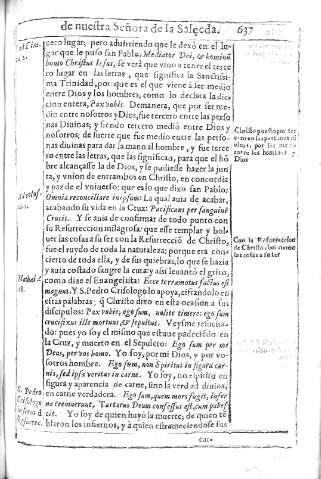 de nuestra Señora de la Salceda. 637
cero lugar; pero aduirtiendo que le dexò en el lu-
gar que le puso san Pablo, Mediator Dei, & hominũ
homo Christus Iesus, se verà que vino a tener el terce
ro lugar en las letras, que significa la Santissi-
ma Trinidad, porque es el que viene à ser medio
entre Dios y los hombres, como lo declara la dic-
cion entera, Pax vobis. Demanera, que por ser me-
dio entre nosotros y Dios, fue tercero entre las perso
nas Diuinas; y siendo tercero medio entre Dios y
nosotros; de suerte que fue medio entre las perso-
nas diuinas para dar la mano al hombre, y fue terce
ro entre las letras, que las significan, para que el hõ
bre alcançasse la de Dios, y se pudiesse hazer la jun
ta, y vnion de entrambos en Christo, en concordia
y paz de el vniuerso: que es lo que dixo san Pablo:
Omnia reconciliare in ipsum: La qual auia de acabar,
acabando su vida en la Cruz: Pacificans per sanguinẽ
Crucis. Y se auia de confirmar de todo punto con
su Resurreccion milagrosa: que esse templar y bol-
uer las cosas a su ser con la Resurrecciõ de Christo,
fue el ruydo de toda la naturaleza; porque era con-
cierto de toda ella, y de sus quiebras, lo que se hazia
y auia costado sangre la cura: y assi leuantò el grito,
como dize el Euangelista: Ecce terramotus factus est
magnus. Y S. Pedro Crisologo lo apoya, cifrandolo en
estas palabras; q̃ Christo dixo en esta ocasion a sus
dicipulos: Pax vobis, ego sum, nolite timere: ego sum
crucifixus ille mortuus, & sepultus. Veysme resucita-
do: pues yo soy el mismo que estuue padeciẽdo en
la Cruz, y muerto en el Sepulcro: Ego sum per me
Deus, per vos homo. Yo soy, por mi Dios, y por vo-
sotros hombre. Ego sum, non Spiritus in figura car-
nis, sed ipsa veritas in carne. Yo soy, no espiritu en
figura y aparencia de carne, sino la verdad diuina,
en carne verdadera. Ego sum, quem mors fugit, infer
na tremuerunt, Tartarus Deum confessus est, cum pabes
cit. Yo soy de quien huyò la muerte; de quien tẽ
blaron los infiernos, y à quien estremeciendose sus
Christo
Dios
Con la Resurreccion
de Christo, boluieron
las cosas a su ser
S. Pedro
Crisologo